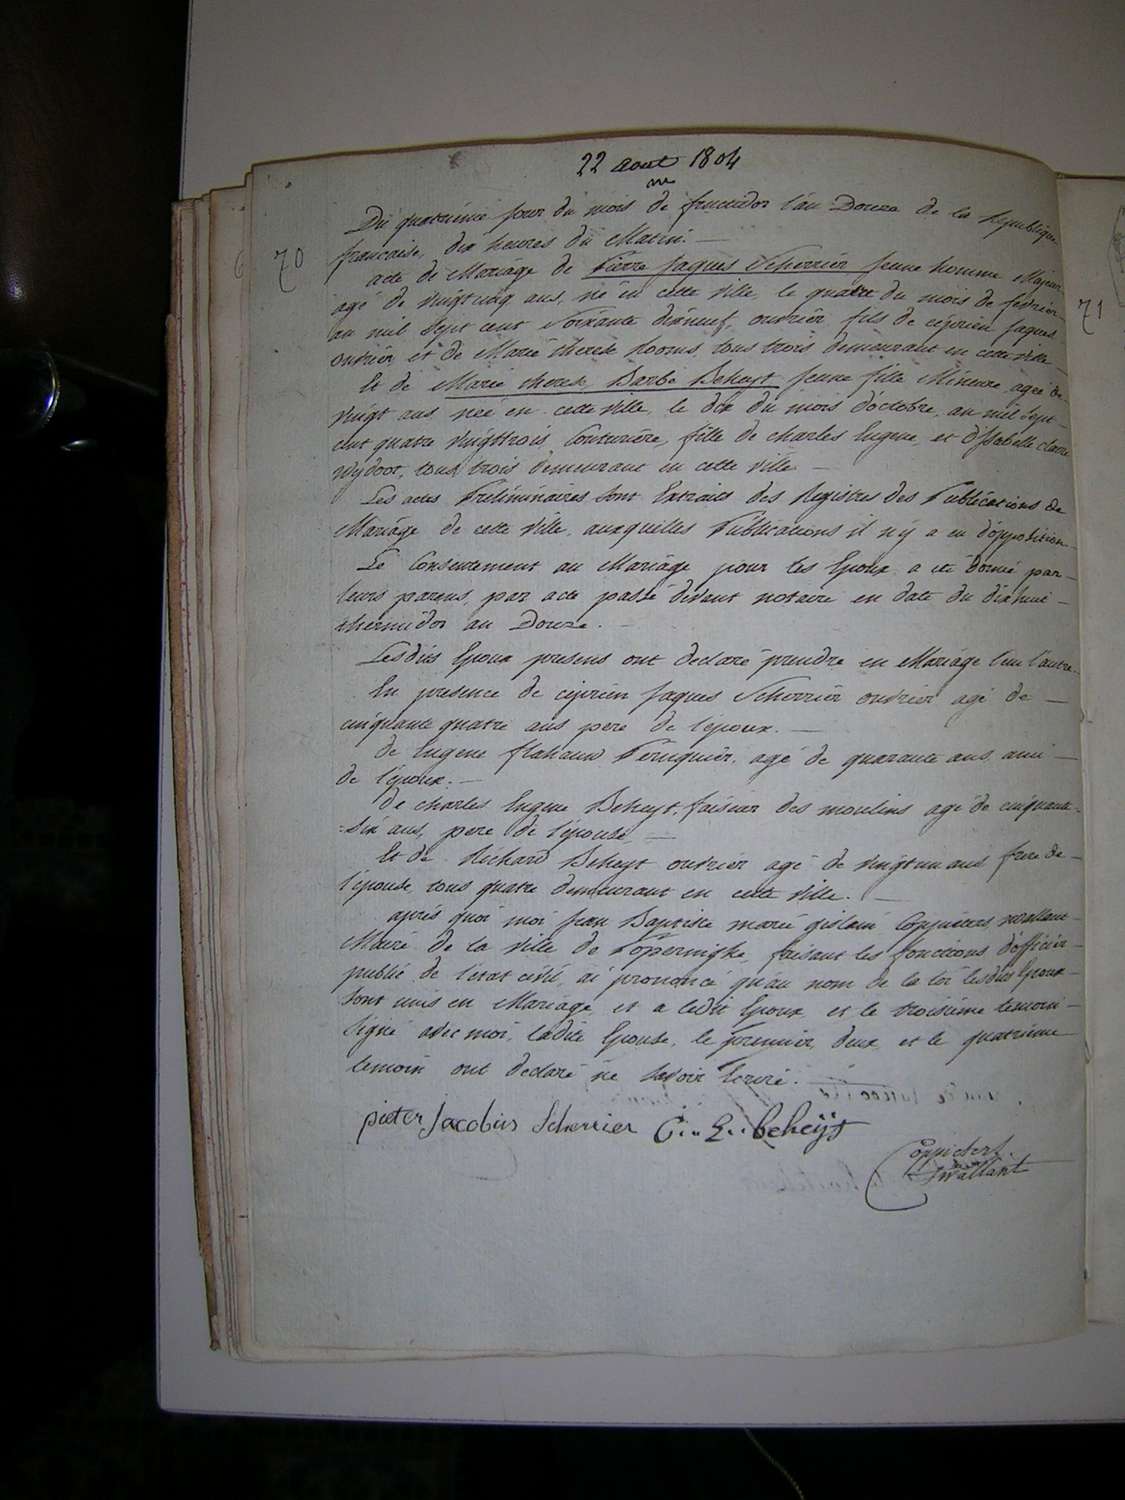 22 aout 1804
me
Du quatriéme jour du mois de fructidor l'an Douze de la République
70
française, dix heures du Matin. —
acte de Mariâge de Pierre Jaques Scherrier jeune homme Majeur
agé de vingtcinq ans, né en cette ville, le quatre du mois de fevrier
an mil sept cent soixante dixneuf, ouvriér, fils de ciprien Jaques
71
ouvriér et de Marie therese Rooms, tous trois demeurant en cette ville
Et de Marie therese Barbe Beheyt jeune fille Mineure agée de
vingt ans née en cette ville, le dix du mois d'octobre, an mil sept
cent quatre vingttrois Couturiére, fille de charles Eugene, et d'Isabelle claire
Wydoot, tous trois demeurant en cette ville —
Les actes Préliminaires sont Extraits des Registres des Publications de
Mariâge de cette ville, auxquelles Publications il n'ÿ a eu d'opposition
Le Consentement au Mariâge pour les Epoux a été donné par
leurs parens, par acte passé devant notaire en date du dixhuit —
thermidor an Douze. —
Lesdits Epoux presens ont declaré prendre en Mariâge l'un l'autre
En presence de ciprien Jaques Scherriér ouvriér agé de —
cinquante quatre ans pere de l'epoux. —
de Eugene flahaun Péruquiér, agé de quarante ans, ami —
de l'epoux. —
de charles Eugene Beheyt, faiseur des moulins agé de cinquante
six ans, pere de l'épouse —
Et de Richard Beheyt ouvriér agé de vingtun ans frere de —
l'épouse, tous quatre demeurant en cette ville. —
aprés quoi moi Jean Baptiste marie gislain Coppieters, wallant
Maire de la ville de Poperinghe, faisant les fonctions d'officiér
public de l'etat civil, ai prononcé qu'au nom de la loi lesdits Epoux
sont unis en Mariâge, et a ledit Epoux et le troisiéme temoin —
signé avec moi, ladite Epouse, le Premier, deux et le quatriéme
temoin ont declaré ne savoir Ecrire.
pieter Jacobus Scherrier C: E: beheÿt
Coppieters
wallant